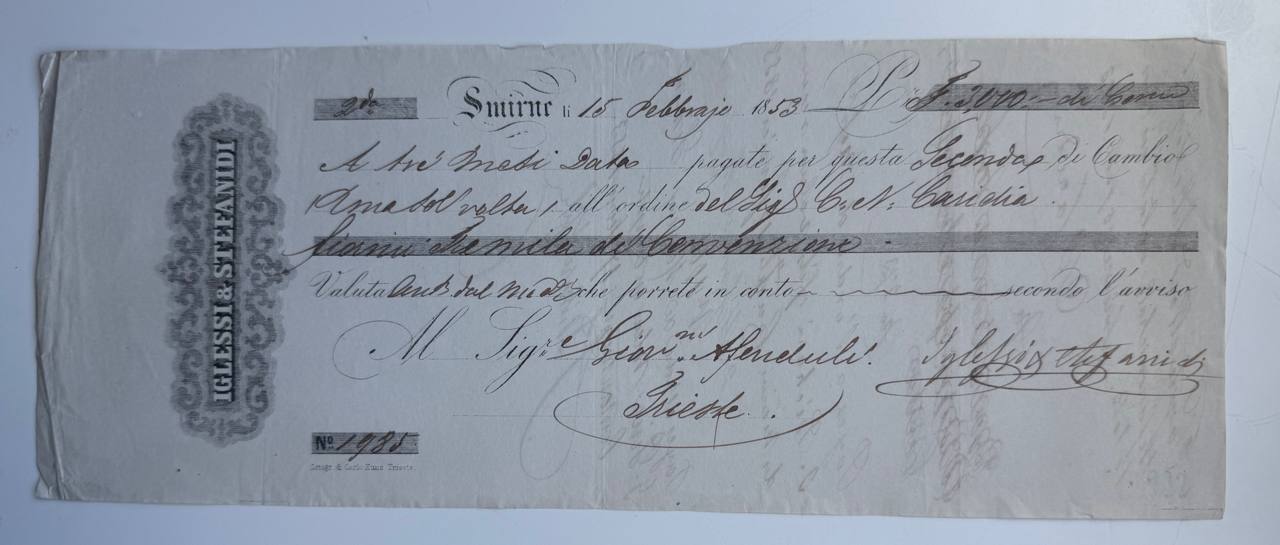 IGLESSI & STEFANIDI
2da Smirne li 15 Febbrajo 1853 Pr f. 3000 :- di Conv
A tré Mesi Data pagate per questa Seconda di Cambio
una sol volta, all' ordine del Sigr C. N. Caridia
fiorini Tremila di Convenzione
Valuta dal che porrete in conto secondo l'avviso
Al Sigre Giovni Afenduli. Iglessi & Stefanidi
Trieste.
No 1985
Litogr. di Carlo Kunz Trieste.